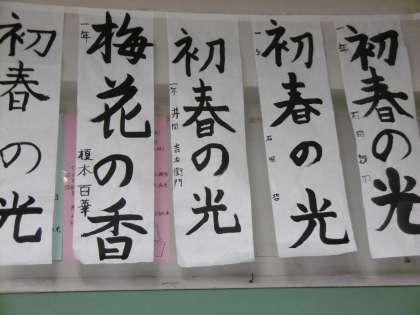 初春の光
一年
梅花の香
榎本百華
初春の光
一年
初春の光
一年
初春の光
一年